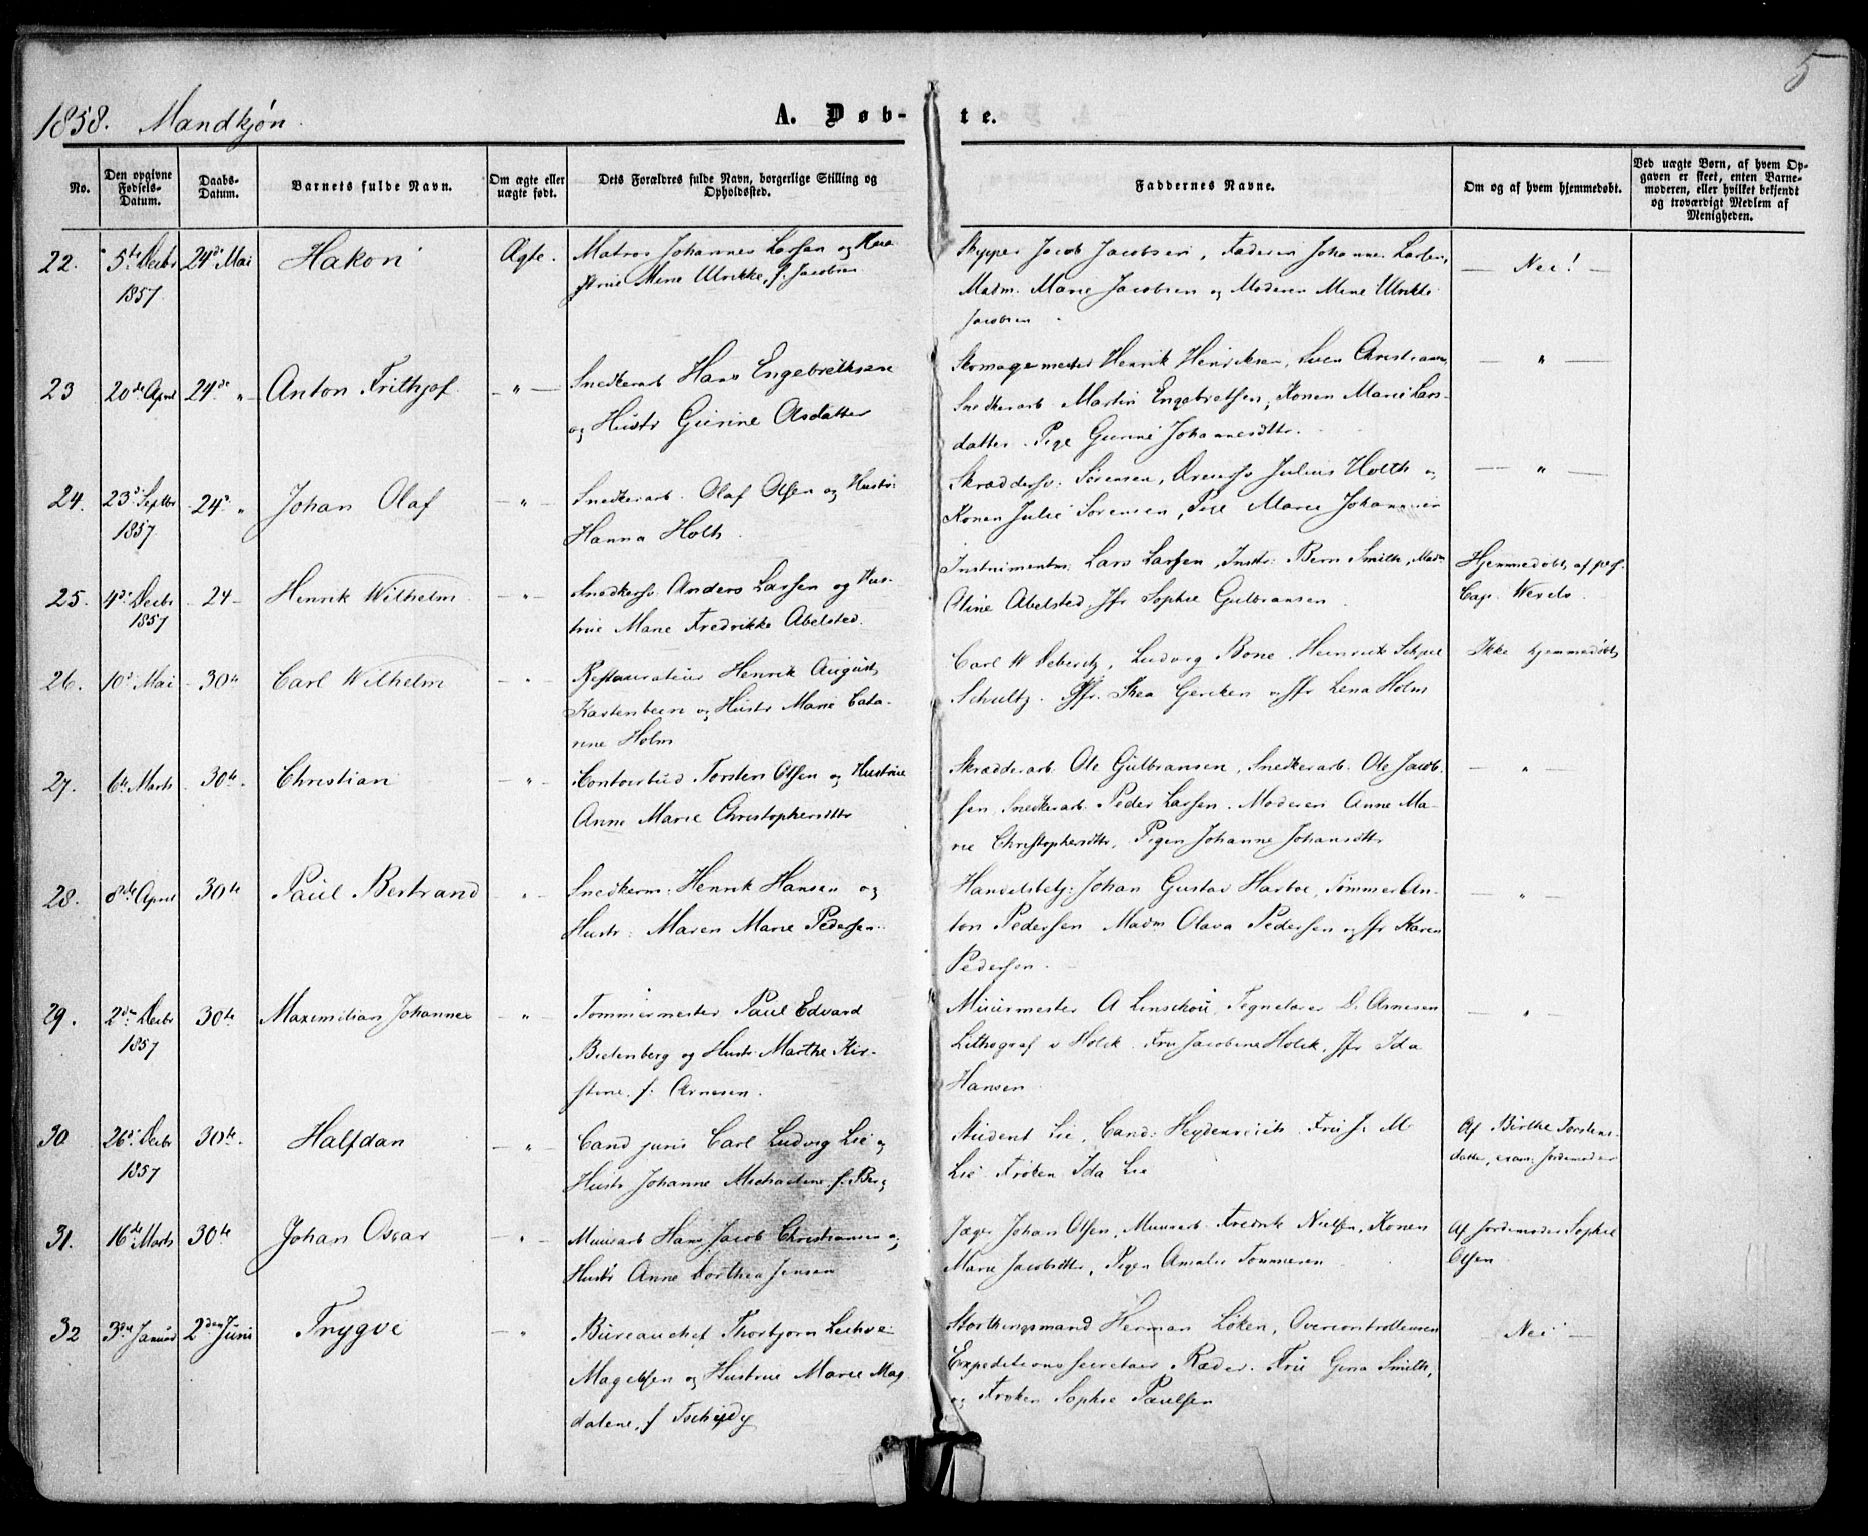 5
1858. Mandkjøn.
A. Døb-te.
No.
Den opgivne Fødsels-Datum.
Daabs-Datum.
Barnets fulde Navn.
Om ægte eller uægte født.
Dets Forældres fulde Navn, borgerlige Stilling og Opholdssted.
Faddernes Navne.
Om og af hvem hjemmedøbt.
Ved uægte Børn, af hvem Opgaven er skeet, enten Barnemoderen, eller hvilket bekjendt og troværdigt Medlem af Menigheden.
22. 5te Decbr 24de Mai Hakon Ægte. Matros Johannes Larsen og Hu- Skypper Jacob Jacobsen, Faderen Johannes Larsen, — Nei! —
1857 strue Mine Ulrikke, f. Jacobsen Madm. Marie Jacobsen og Moderen Mine Ulrikke
Jacobsen
23 20de April 24de " Anton Frithjof — " — Snedkerarb Hans Engebrethsen Skomagermester Henrik Henriksen, — " —
og Hustr Gurine Olsdatter Snedkerarb. Martin Engebretsen, Konen Marie Lars-
datter. Pige Gurine Johannesdttr.
24. 23de Septbr 24de " Johan Olaf — " — Snedkerarb. Olaf Olsen og Hustr: Skræddersv. Sørensen, Julius Holth og — " —
1857 Hanna Holth Konen Julie Sørensen, Pige Marie
25. 4de Decbr 24 — Henrik Wilhelm — " — Snedkersv. Anders Larsen og Hus- Instrumentm. Lars Larsen, Instr: Bern Smith, Madm Hjemmedøbt af
1857 true Marie Fredrikke Abelsted. Oline Abelsted, Jfr Sophie Gulbransen. Cap. Wexels.
26. 10de Mai 30te Carl Wilhelm " Restauratieur Henrik August Carl W. Ludvig Bone, Heinrich Ikke hjemmedøbt
Kastenbein og Hustr Marie Catha- Schultz. Jfr. Thea Gercken og Jfr Lena Holm
rine Holm
27. 6te Marts 30te. Christian — " — Contorbud Torsten Olsen og Hustrue Skrædderarb. Ole Gulbransen, Snedkerarb. Ole Jacob- — " —
Anne Marie Christophersdttr sen, Snedkerarb. Peder Larsen. Moderen Anne Ma-
rie Christophersdttr, Pigen Johanne Johansdttr
28. 8de April 30te Paul Bertrand — " — Snedkerm: Henrik Hansen og Handelsbetj: Johan Gustav Harboe, Tømmerm An- — " —
Hustr: Maren Marie Pedersen. ton Pedersen Madm Olava Pedersen og Jfr Karen
Pedersen.
29. 2den Decbr 30te Maximilian Johannes — " — Tømmermester Paul Edvard Muurmester A Linschou, Tegnelærer D. Arnesen — " —
1857 Bielenberg og Hustr: Marthe Kir- Lithograf v Holck. Fru Jacobine Holck, Jfr Ida
stine, f. Arnesen. Hansen
30 26de Decbr 30te. Halfdan — " — Cand juris Carl Ludvig Lie og Student Lie, Cand: Heydenreich Fru J. M. Af Birthe Torstens-
1857 Hustr Johanne Michaeline f. Berg Lie Frøken Ida Lie datter, exam: Jordemoder
31. 16de Marts 30te Johan Oscar — " — Muurarb Hans Jacob Christiansen og Jæger Johan Olsen, Muurarb. Fredrik Nielsen, Konen Af Jordemoder Sophie
Hustr Anne Dorthea Jensen Marie Jacobsdttr, Pigen Amalie Tommesen Olsen
32 3die Januar 2den Juni Trygve " Bureauchef Thorbjørn Storthingsmand Herman Løken, Overcontrolleuren — Nei —
Magelsen og Hustrue Marie Mag- Expeditionssecretær Ræder. Fru Gina Smith,
dalene, f og Frøken Sophie Paulsen